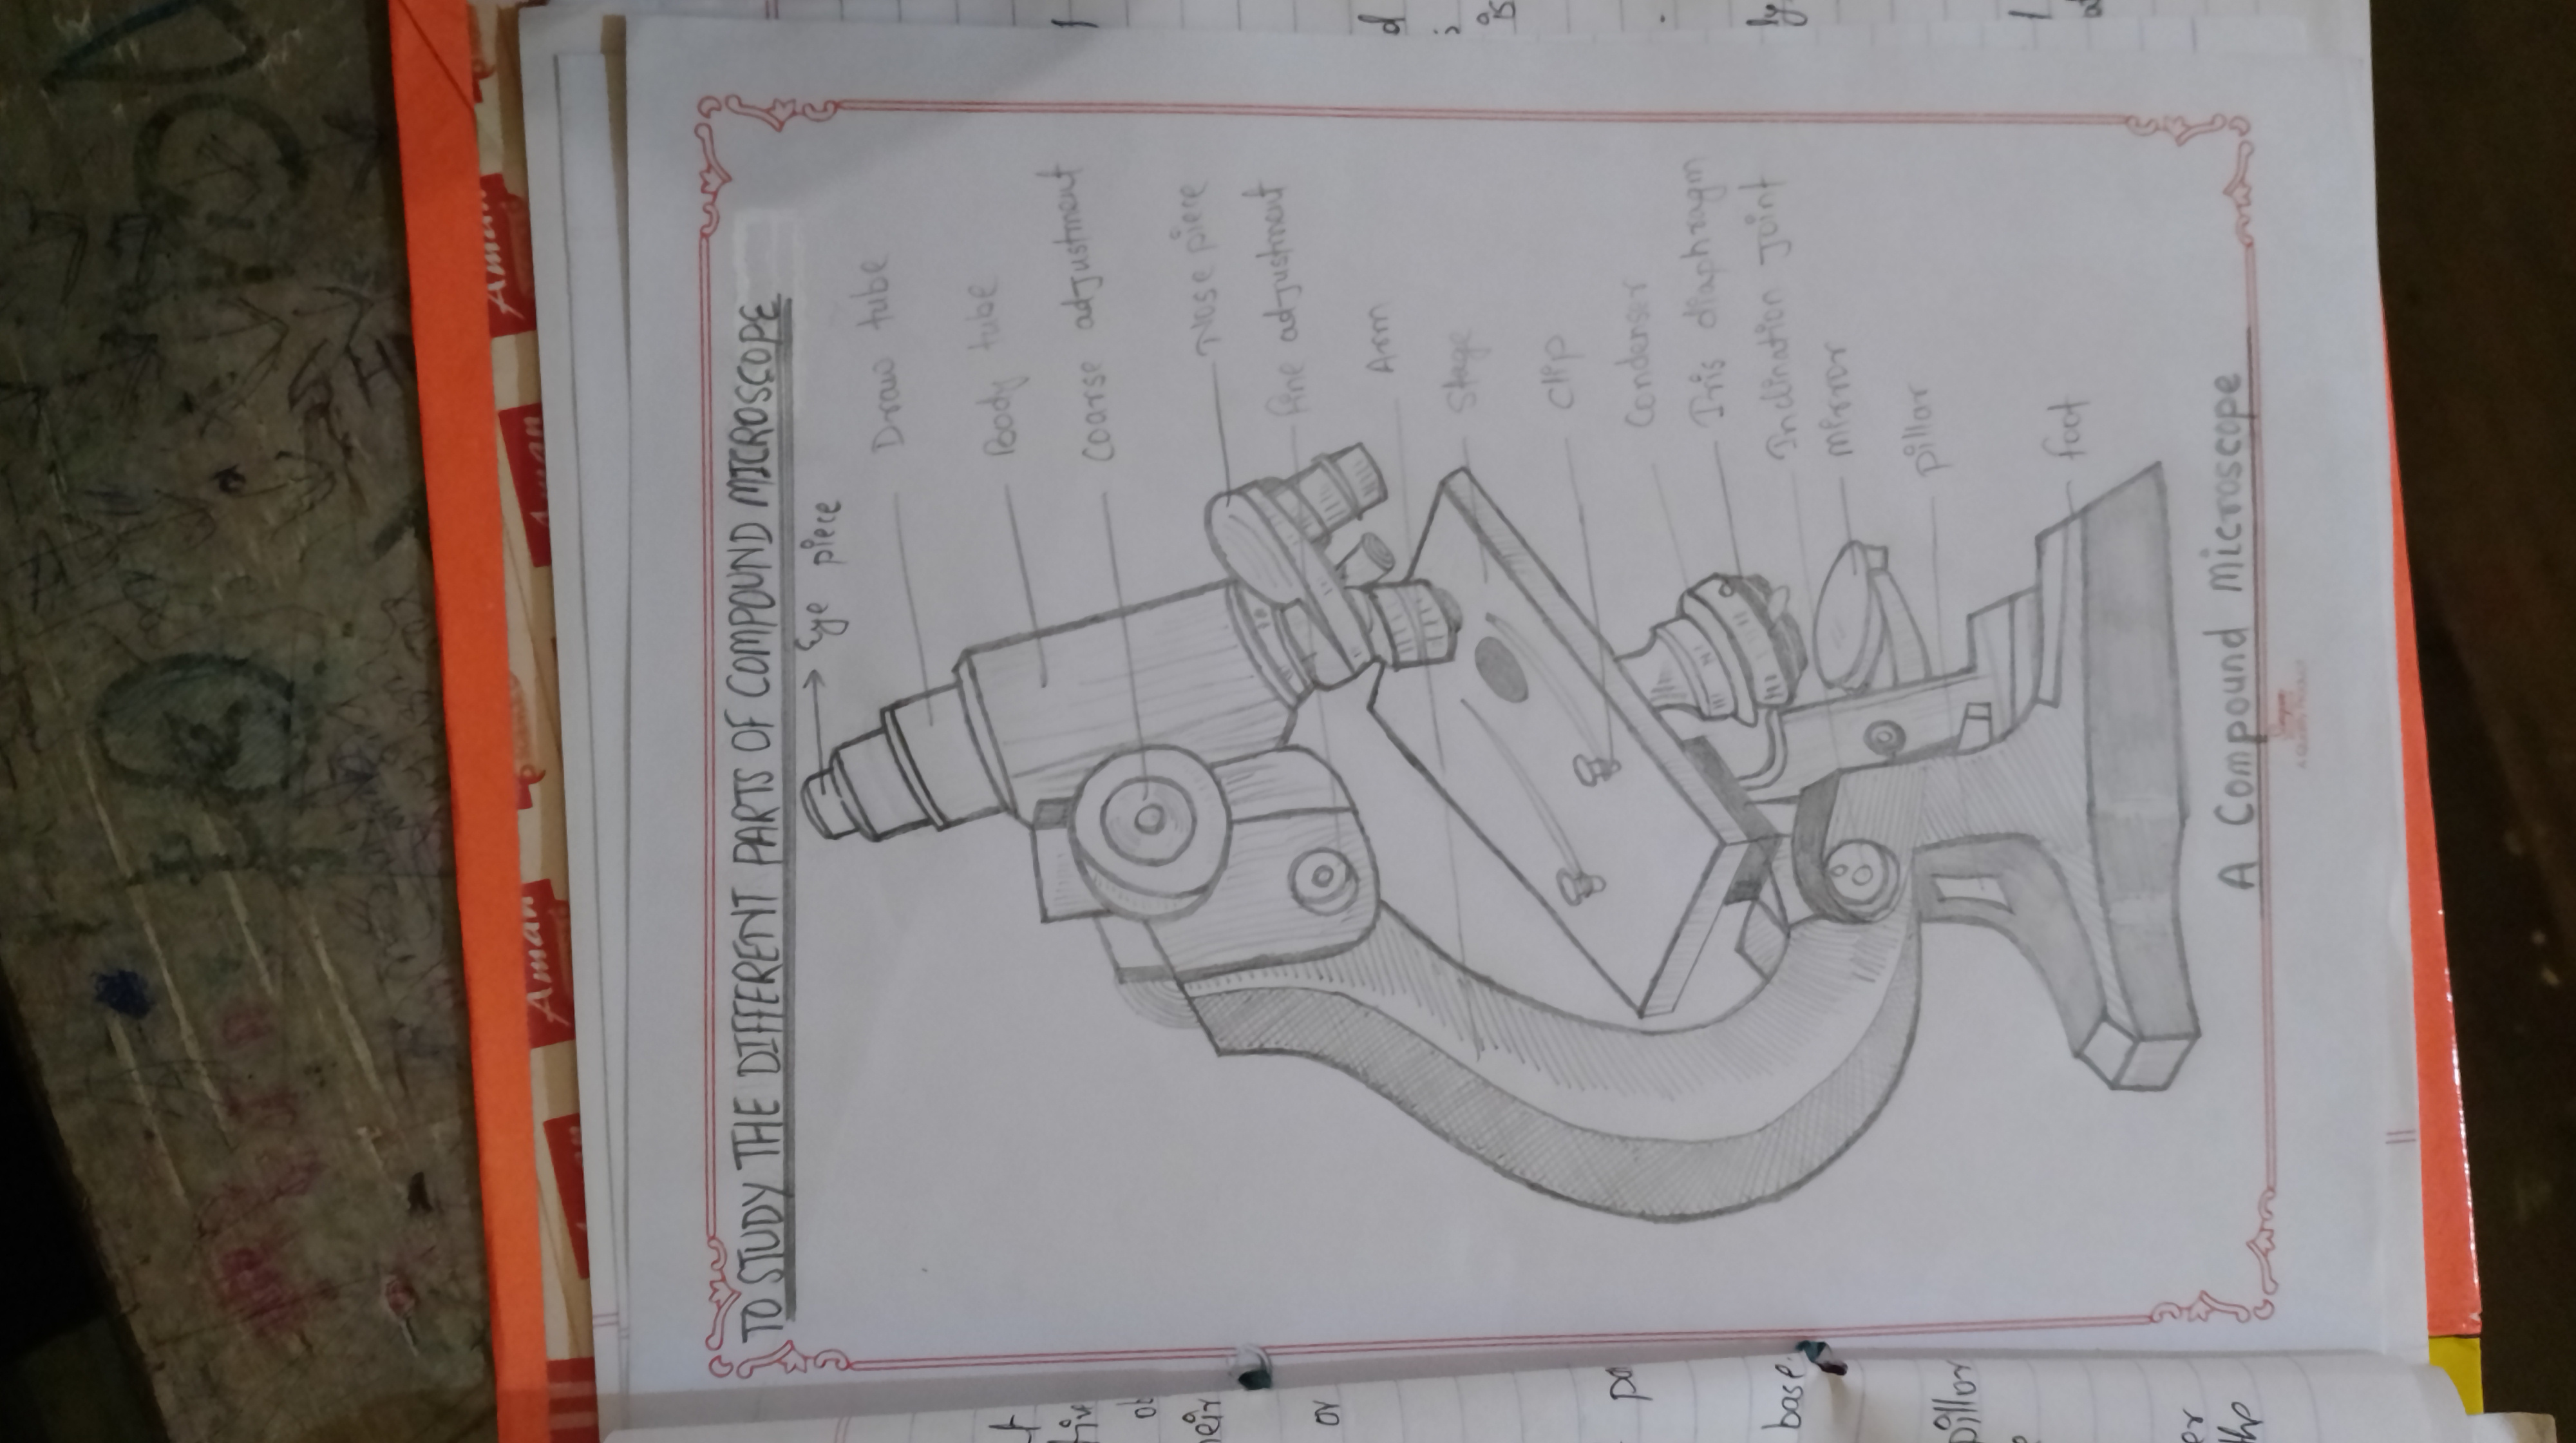 TO STUDY THE DIFFERENT PARTS OF COMPOUND MICROSCOPE
Eye piece
Draw tube
Body tube
Coarse adjustment
Nose piece
fine adjustment
Arm
Stage
Clip
Condenser
Iris diaphragm
Inclination Joint
Mirror
pillar
foot
A Compound Microscope
Aman
Aman
Aman
base.
pillar